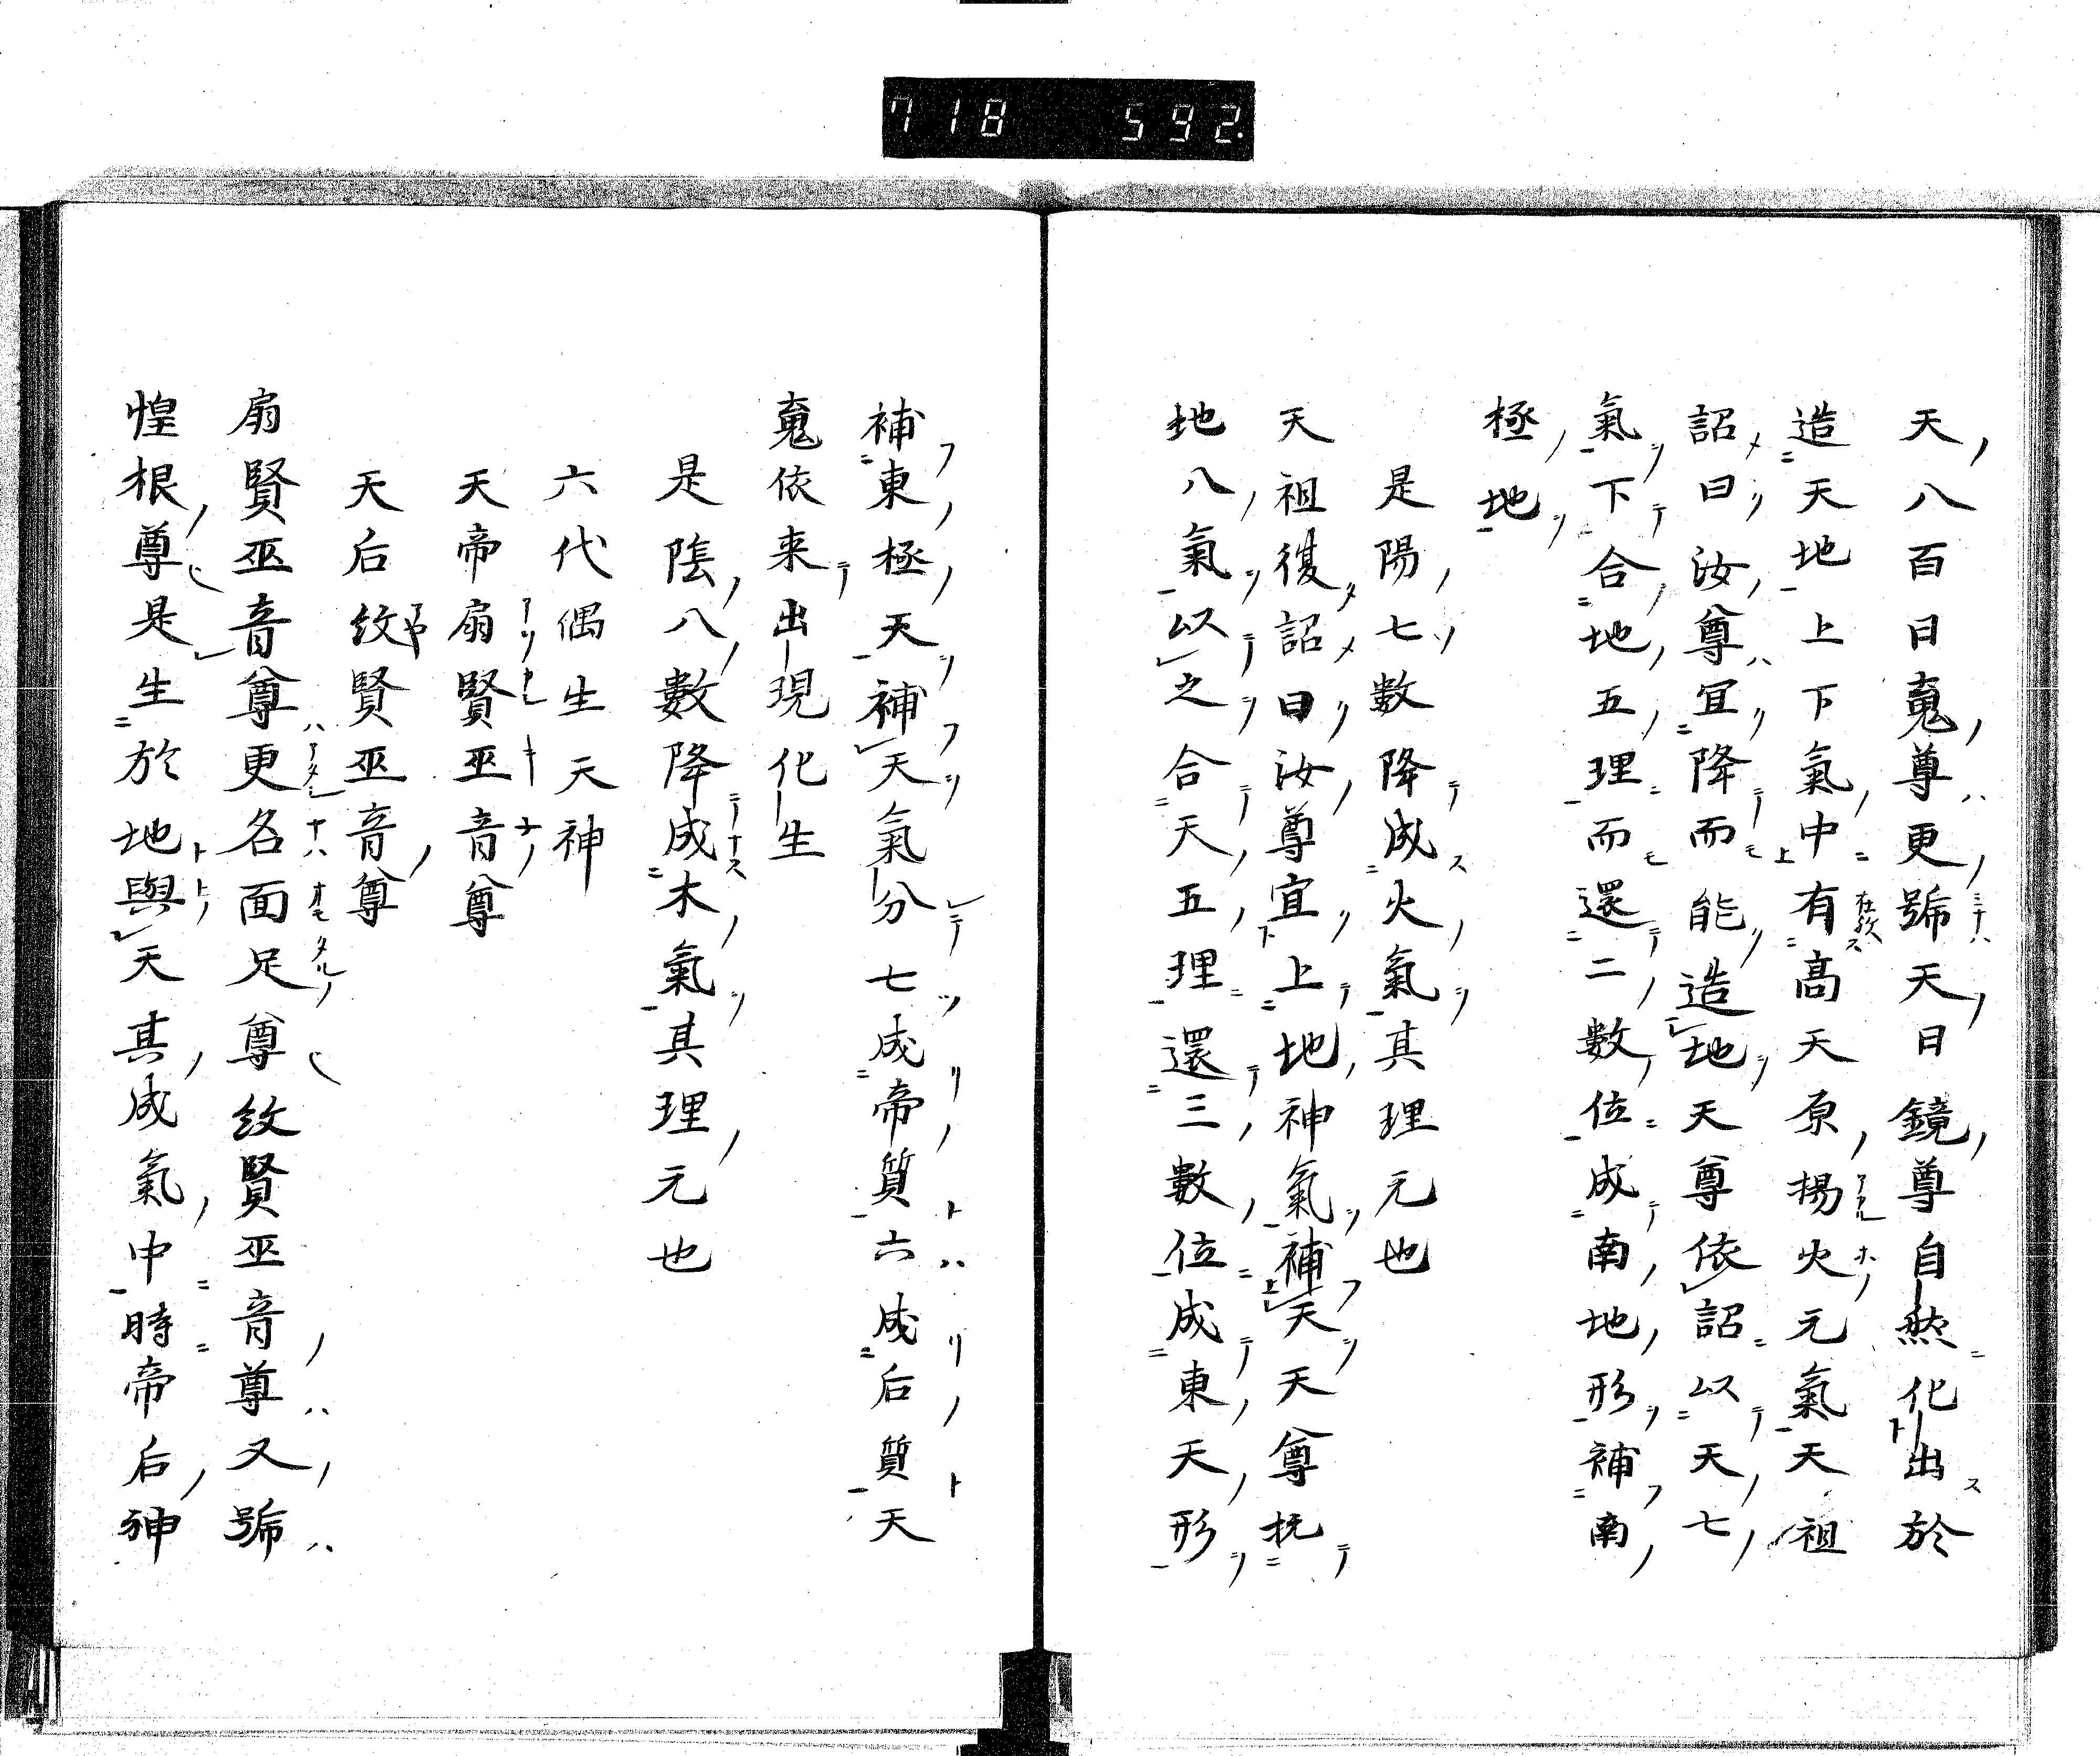 718 592
天八百日䰟尊更號天日鏡尊自然化出於
造天地上下氣中有高天原揚火元氣天祖
詔曰汝尊宜降而能造地天尊依詔以天七
氣下合地五理而還二數位成南地形補南
極地
是陽七數降成火氣其理元也
天祖復詔曰汝尊宜上地神氣補天天尊抚
地八氣以之合天五理還三數位成東天形
補東極天補天氣分七成帝質六成后質天
䰟依来出現化生
是陰八數降成木氣其理元也
六代偶生天神
天帝扇賢巫音尊
天后紋賢巫音尊
扇賢巫音尊更名面足尊紋賢巫音尊又號
惶根尊是生於地與天其成氣中時帝后神